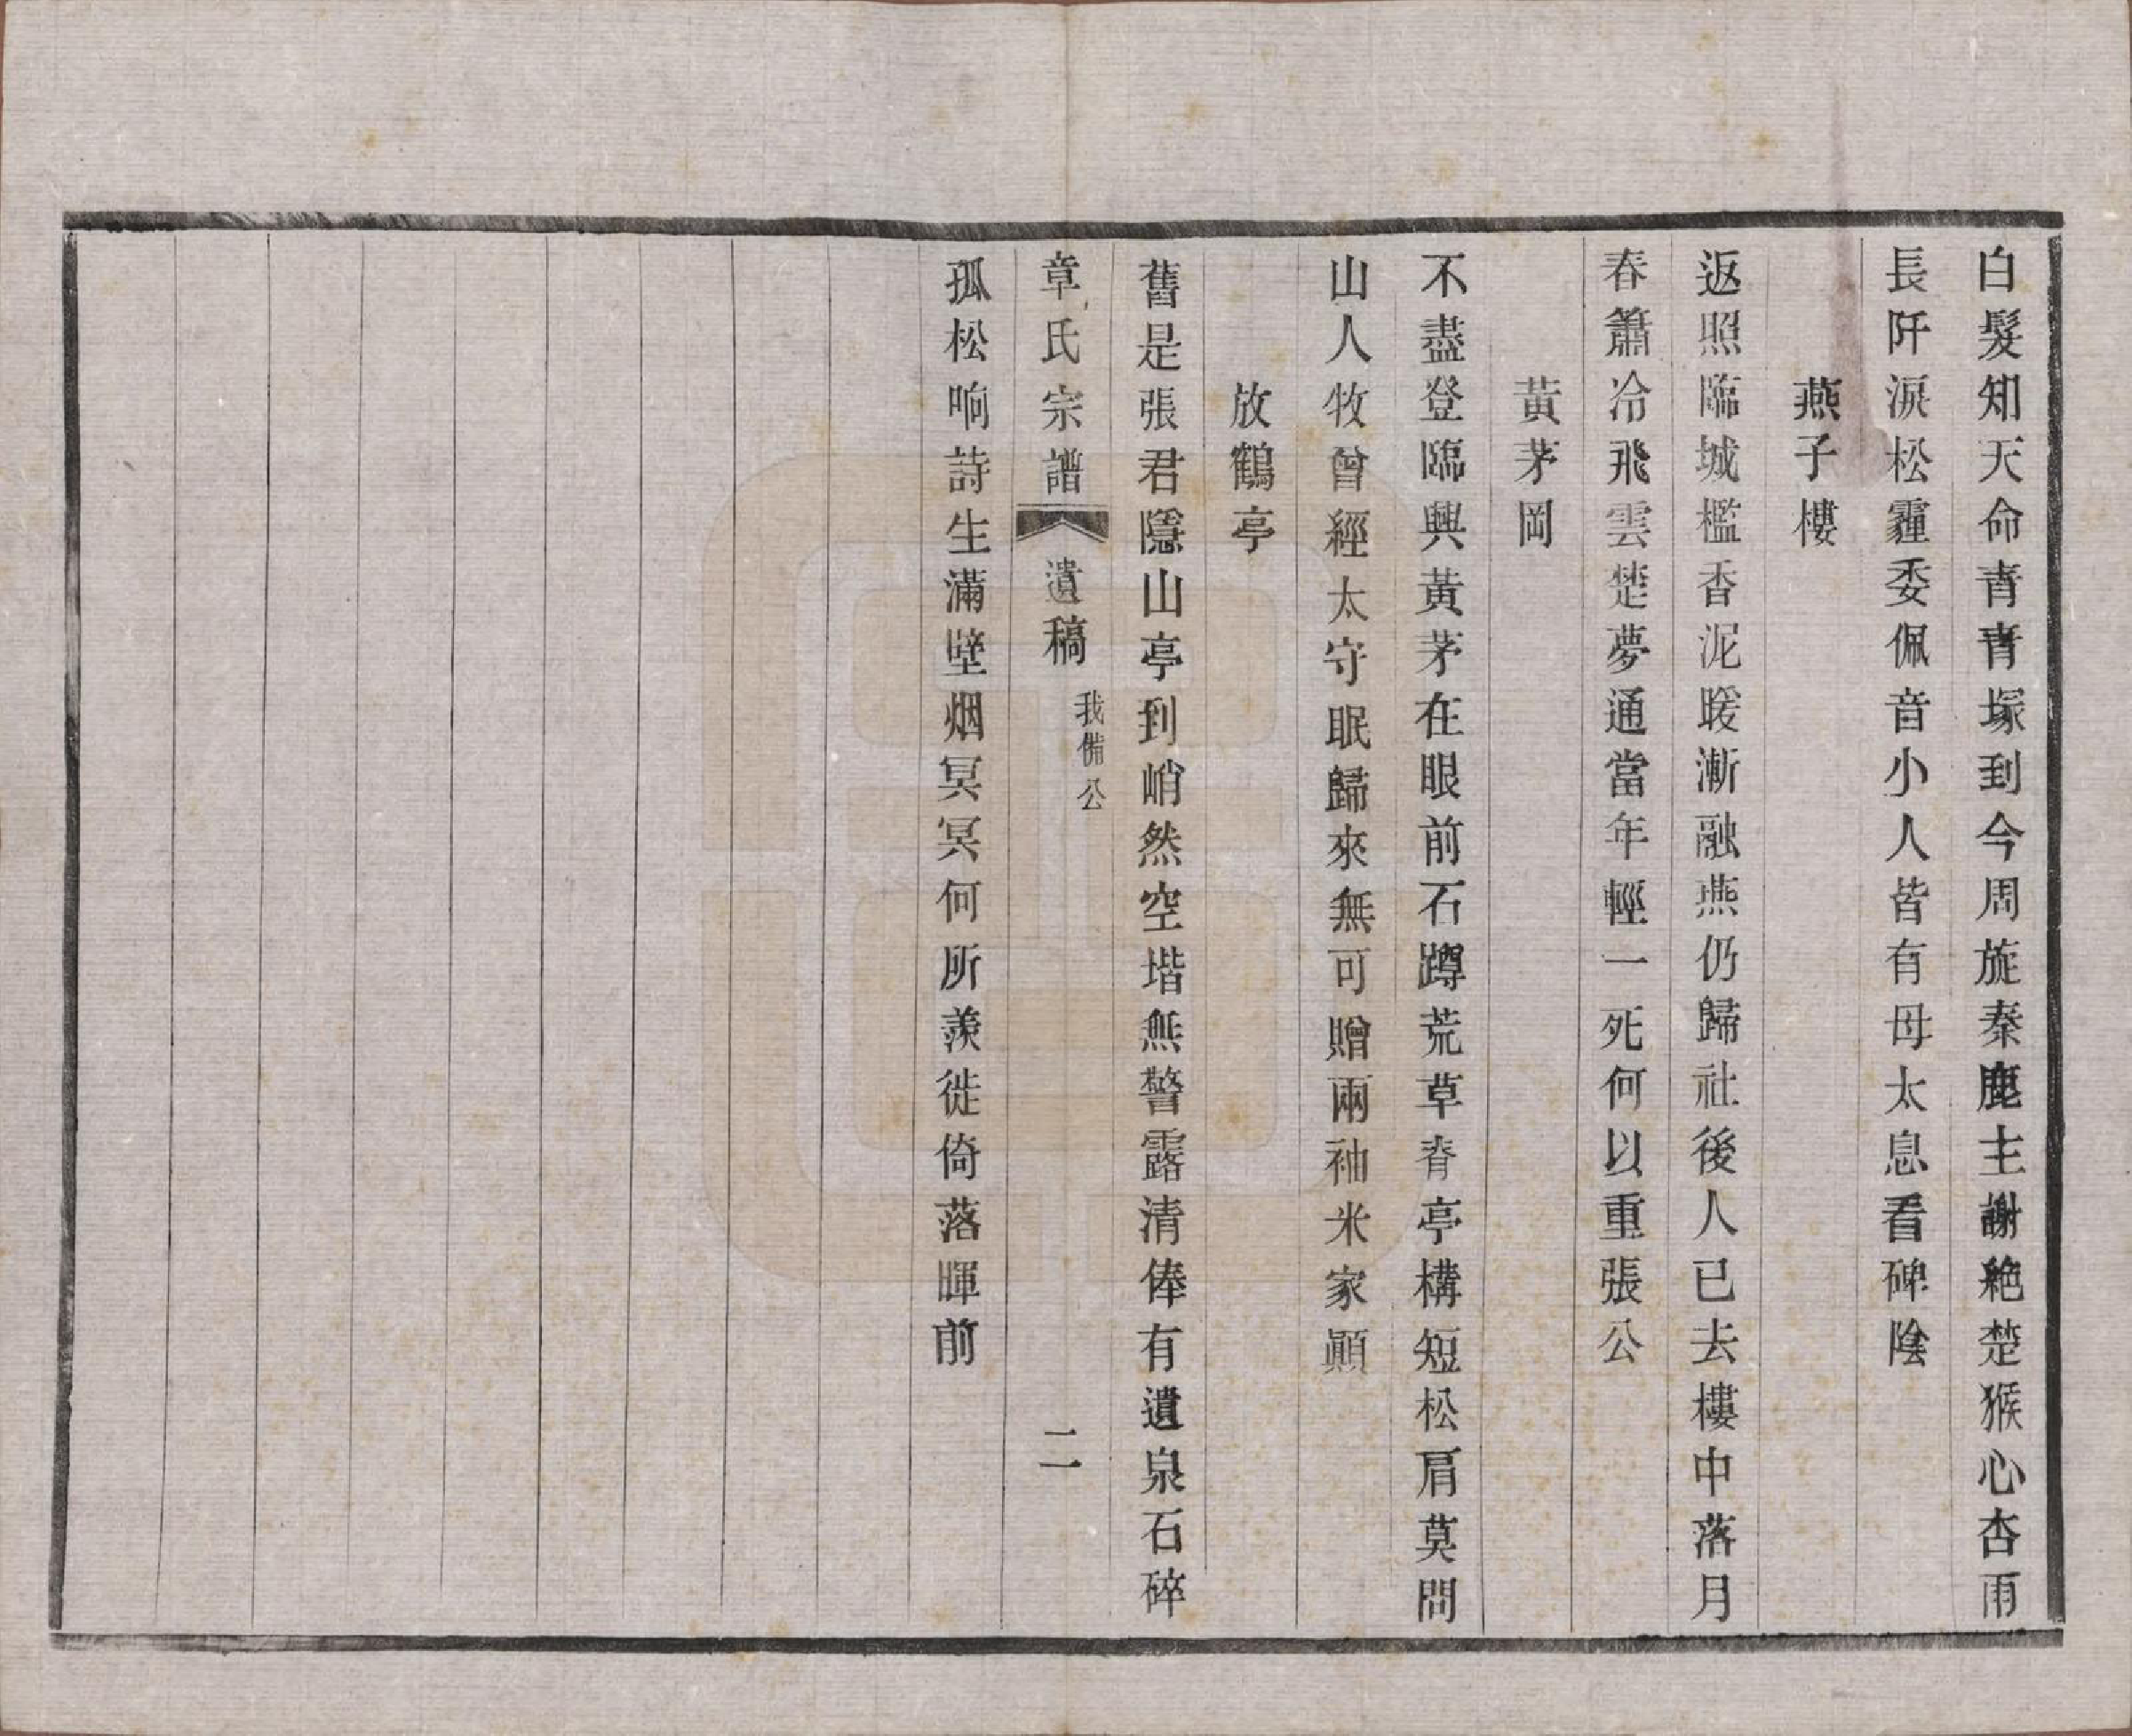 白髮知天命青青塚到今周旋秦鹿主謝絶楚猴心杏雨
長阡淚松霾委佩音小人皆有母太息看碑陰
燕子樓
返照臨城檻香泥暖漸融燕仍歸社後人已去樓中落月
春簫冷飛雲楚夢通當年輕一死何以重張公
黃茅岡
不盡登臨興黃茅在眼前石蹲荒草脊亭構短松肩莫問
山人牧曾經太守眠歸來無可贈兩袖米家顚
放鶴亭
舊是張君隱山亭到峭然空堦無警露清俸有遺泉石碎
章氏宗譜 遺稿 我備公 二
孤松响詩生滿壁烟冥冥何所羨徙倚落暉前